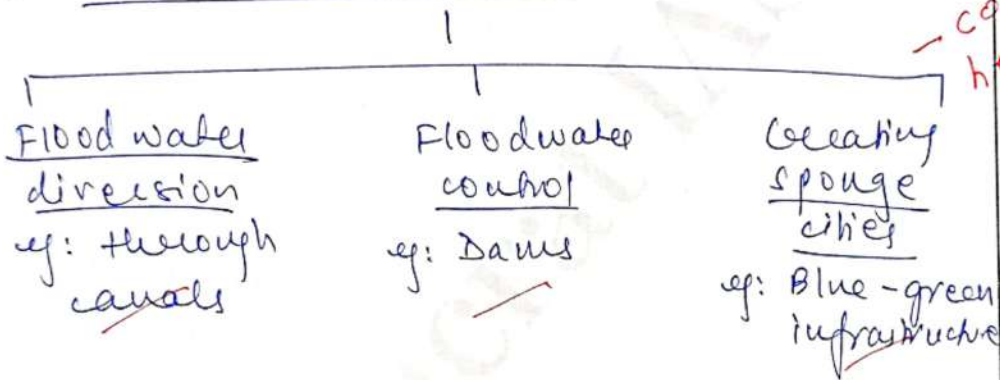 Flood water
diversion
eg: through
canals
Floodwater
control
eg: Dams
Creating
sponge
cities
eg: Blue-green
infrastructure